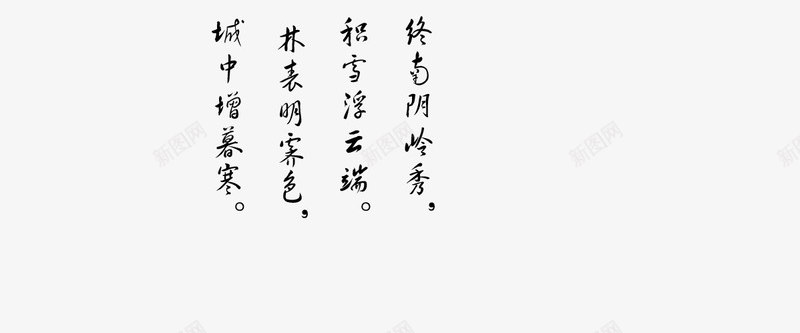 终南阴岭秀，
积雪浮云端。
林表明霁色，
城中增暮寒。
新图网
新图网
新图网